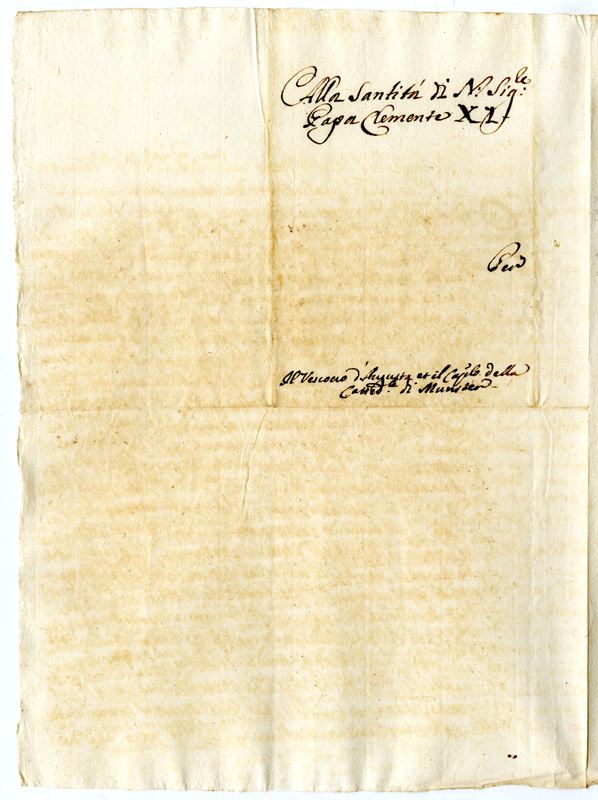 Alla Santità di N. Sig.re
Papa Clemente XI
Per
Il Vescovo d'Augusta et il Cap.lo della
Catted.le di Munster